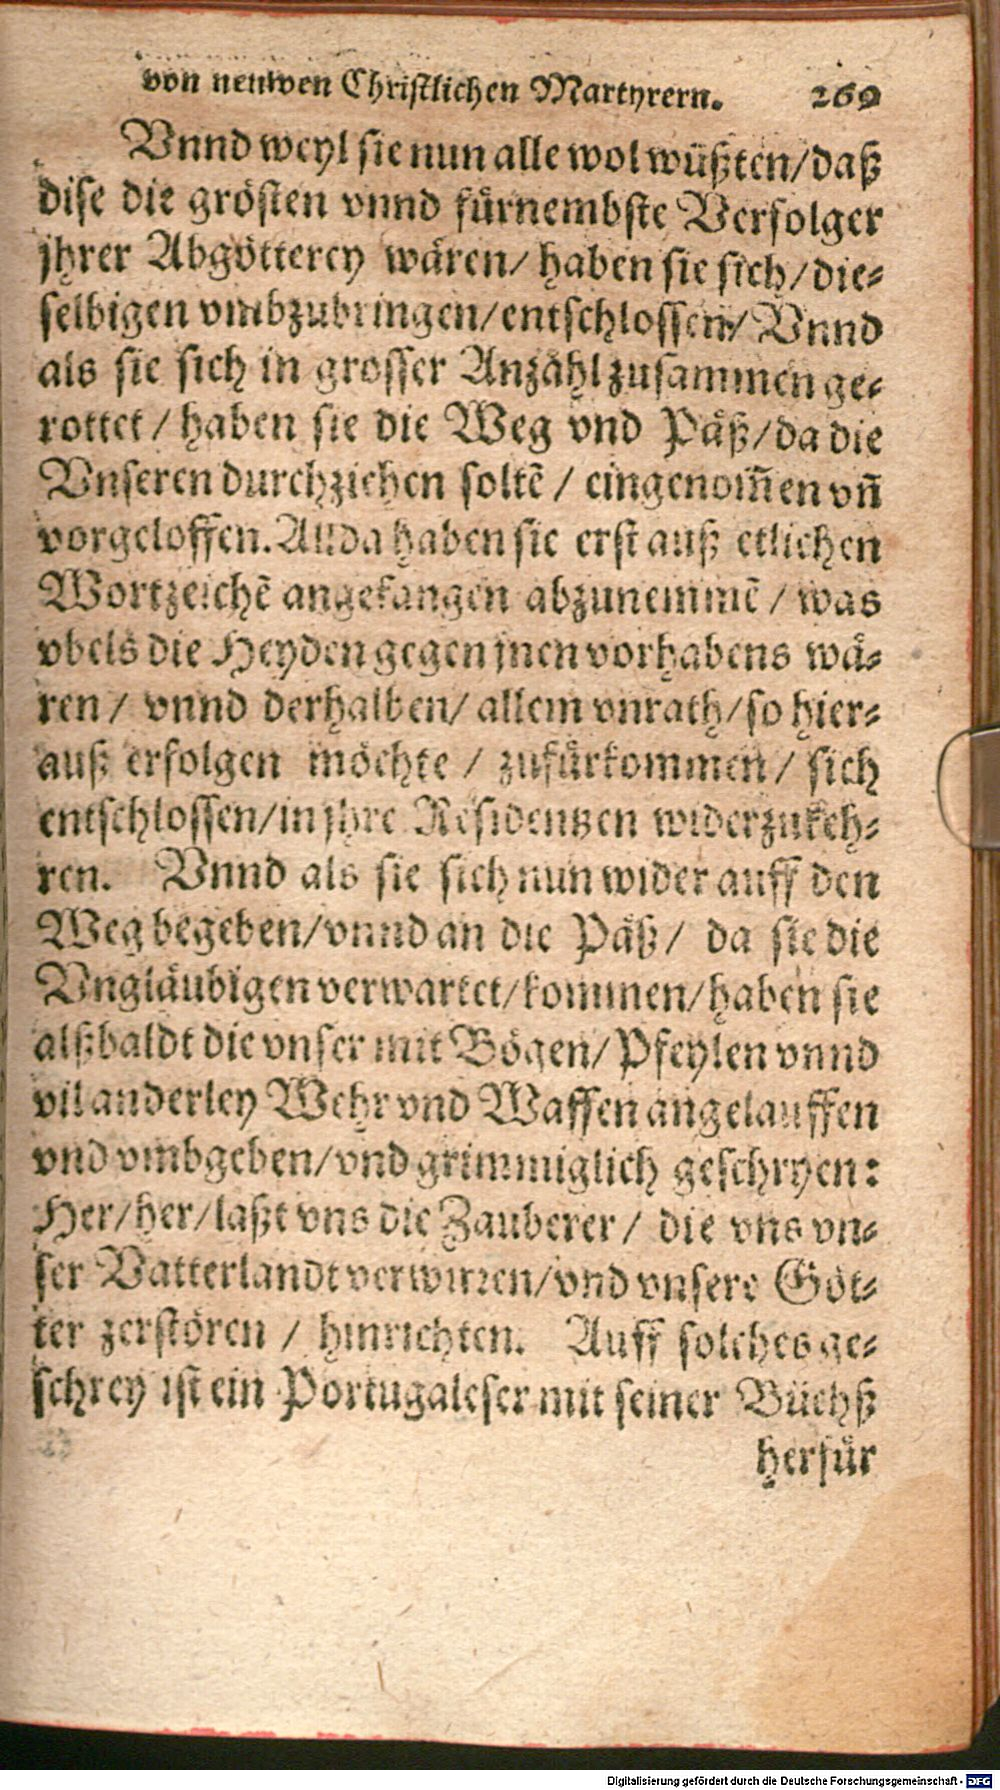 von neuwen Christlichen Martyrern. 269
Vnnd weyl sie nun alle wol wüßten/daß
dise die grösten vnnd fürnembste Verfolger
jhrer Abgötterey wären/ haben sie sich/die-
selbigen vmbzubringen/entschlossen/ Vnnd
als sie sich in grosser Anzahl zusammen ge-
rottet / haben sie die Weg vnd Päß/da die
Vnseren durchziehen soltē / eingenom̄en vn̄
vorgeloffen. Allda haben sie erst auß etlichen
Wortzeichē angefangen abzunemmē / was
vbels die Heyden gegen jnen vorhabens wä-
ren/ vnnd derhalben/ allem vnrath/so hier-
auß erfolgen möchte / zufürkommen/ sich
entschlossen/in jhre Residentzen widerzukeh-
ren. Vnnd als sie sich nun wider auff den
Weg begeben/vnnd an die Päß/ da sie die
Vngläubigen verwartet/kommen/haben sie
alßbaldt die vnser mit Bögen/Pfeylen vnnd
vil anderley Wehr vnd Waffen angelauffen
vnd vmbgeben/vnd grimmiglich geschryen:
Her/her/laßt vns die Zauberer/ die vns vn-
ser Vatterlandt verwirren/vnd vnsere Göt-
ter zerstören / hinrichten. Auff solches ge-
schrey ist ein Portugaleser mit seiner Büchß
herfür
Digitalisierung gefördert durch die Deutsche Forschungsgemeinschaft - DFG